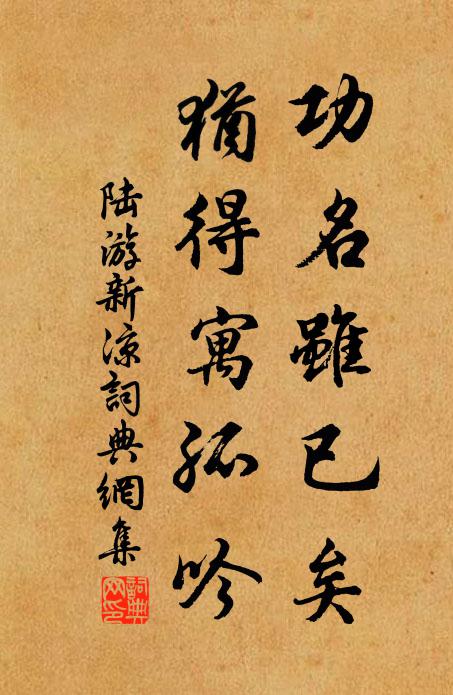 功名雖已矣
猶得寓孤吟
陆游新凉詞典網集
詞典
网印